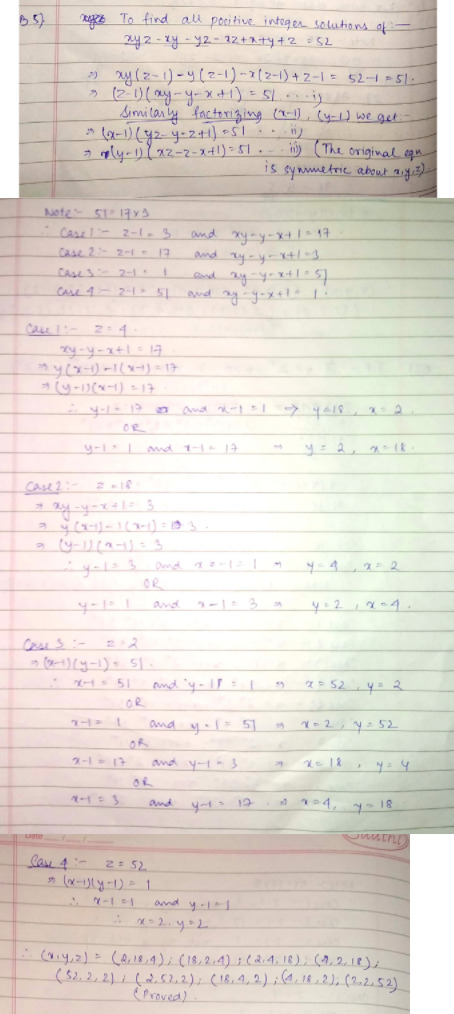 B5) To find all positive integer solutions of :—
xyz - xy - yz - xz + x + y + z = 52
⇒ xy(z-1) - y(z-1) - x(z-1) + z-1 = 52-1 = 51.
⇒ (z-1)(xy - y - x + 1) = 51 ... i)
Similarly factorizing (x-1), (y-1) we get -
⇒ (x-1)(yz - y - z + 1) = 51 ... ii)
⇒ (y-1)(xz - z - x + 1) = 51 ... iii) (The original eqn
is symmetric about x, y, z)
Note:- 51 = 17 x 3
∴ Case 1:- z-1 = 3 and xy - y - x + 1 = 17
Case 2:- z-1 = 17 and xy - y - x + 1 = 3
Case 3:- z-1 = 1 and xy - y - x + 1 = 51
Case 4:- z-1 = 51 and xy - y - x + 1 = 1.
Case 1:- z = 4.
xy - y - x + 1 = 17
⇒ y(x-1) - 1(x-1) = 17
⇒ (y-1)(x-1) = 17
∴ y-1 = 17 and x-1 = 1 ⇒ y = 18, x = 2
OR
y-1 = 1 and x-1 = 17 ⇒ y = 2, x = 18.
Case 2:- z = 18
⇒ xy - y - x + 1 = 3
⇒ y(x-1) - 1(x-1) = 3.
⇒ (y-1)(x-1) = 3
∴ y-1 = 3 and x-1 = 1 ⇒ y = 4, x = 2
OR
y-1 = 1 and x-1 = 3 ⇒ y = 2, x = 4.
Case 3:- z = 2
⇒ (x-1)(y-1) = 51.
∴ x-1 = 51 and y-1 = 1 ⇒ x = 52, y = 2
OR
x-1 = 1 and y-1 = 51 ⇒ x = 2, y = 52
OR
x-1 = 17 and y-1 = 3 ⇒ x = 18, y = 4
OR
x-1 = 3 and y-1 = 17 ⇒ x = 4, y = 18
Date
Case 4:- z = 52
⇒ (x-1)(y-1) = 1
∴ x-1 = 1 and y-1 = 1
∴ x = 2, y = 2
∴ (x,y,z) = (2,18,4); (18,2,4); (2,4,18); (4,2,18);
(52,2,2); (2,52,2); (18,4,2); (4,18,2); (2,2,52)
(Proved).